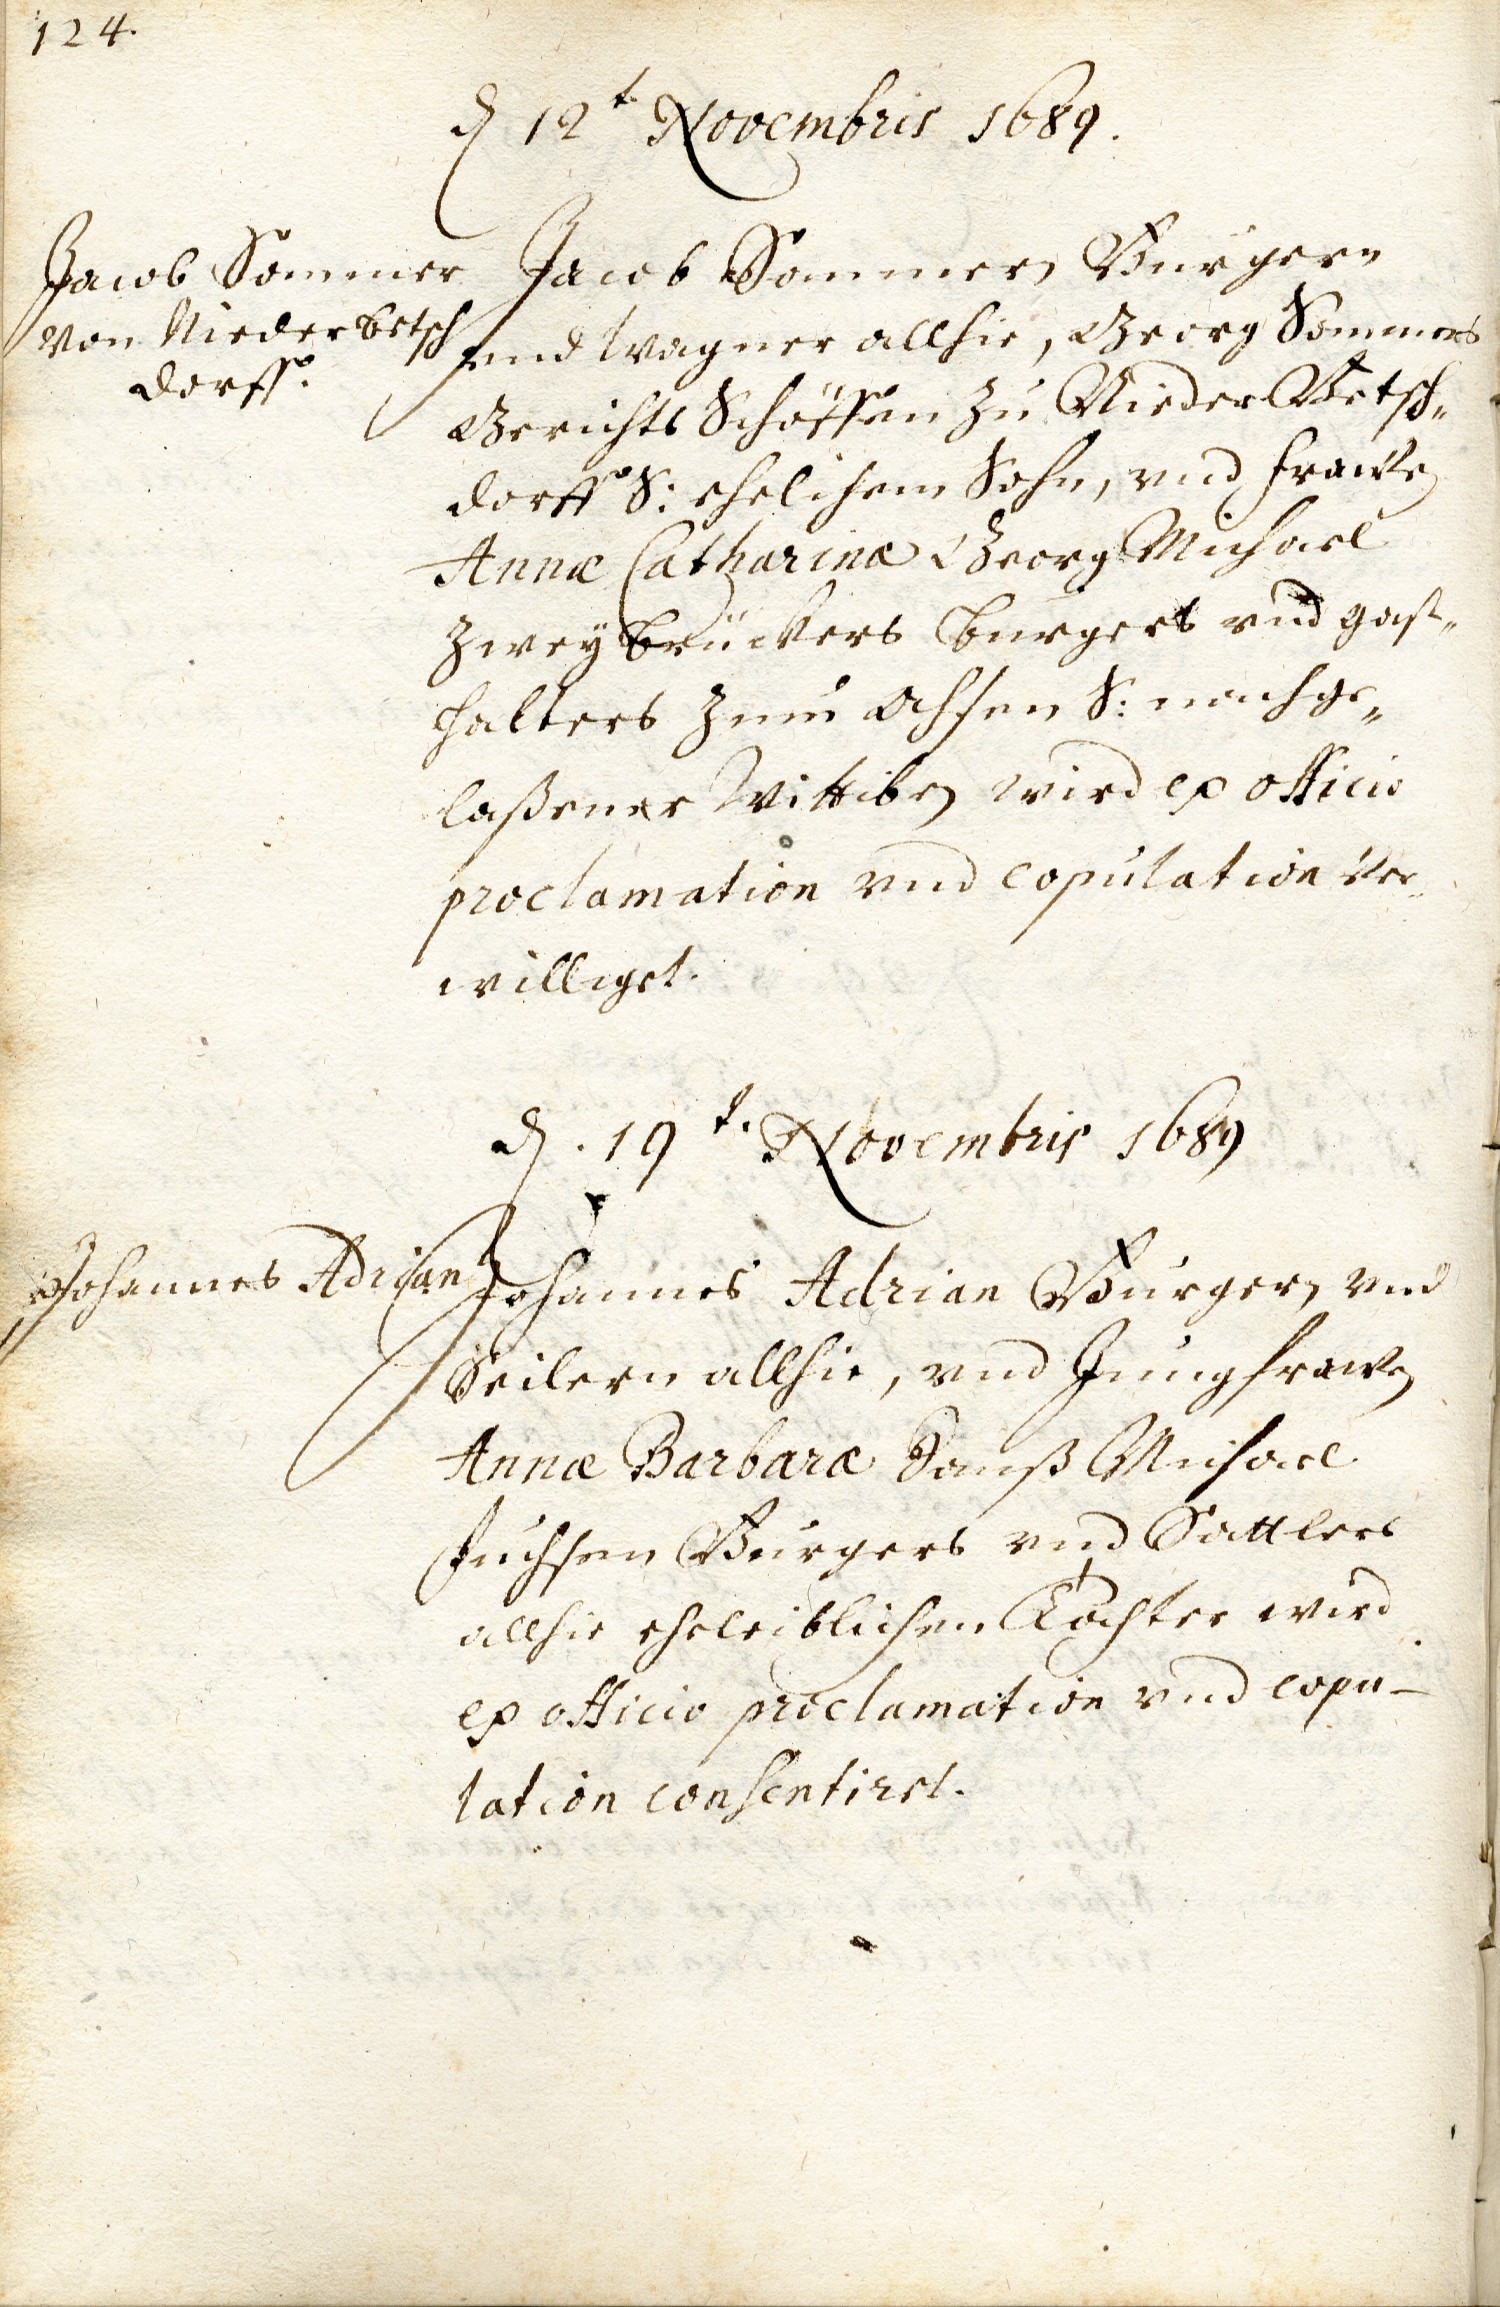 124.
d. 12t Novembris 1689.
Jacob Sommer
von Niederbetsch
dorff.
Jacob Sommern Burgern
und Wagner allhie, Georg Sommers
Gerichts Schöffen zu Nieder Betsch„
dorff S: ehelichem Sohn, vnd frawen
Annæ Catharinæ Georg Michael
Zweybrückers burgers vnd gast„
halters zum Ochsen S: nachge„
laßener Wittiben wird ex officio
proclamation vnd copulation ver
williget.
d. 19t. Novembris 1689
Johannes Adrian
Johannes Adrian Burgern vnd
Seilern allhie, vnd Jungfrawen
Annæ Barbaræ Hanß Michael
Fuchsen Burgers vnd Sattlers
allhie eheleiblichen Tochter wird
ex officio proclamation vnd copu-
lation consentiret.